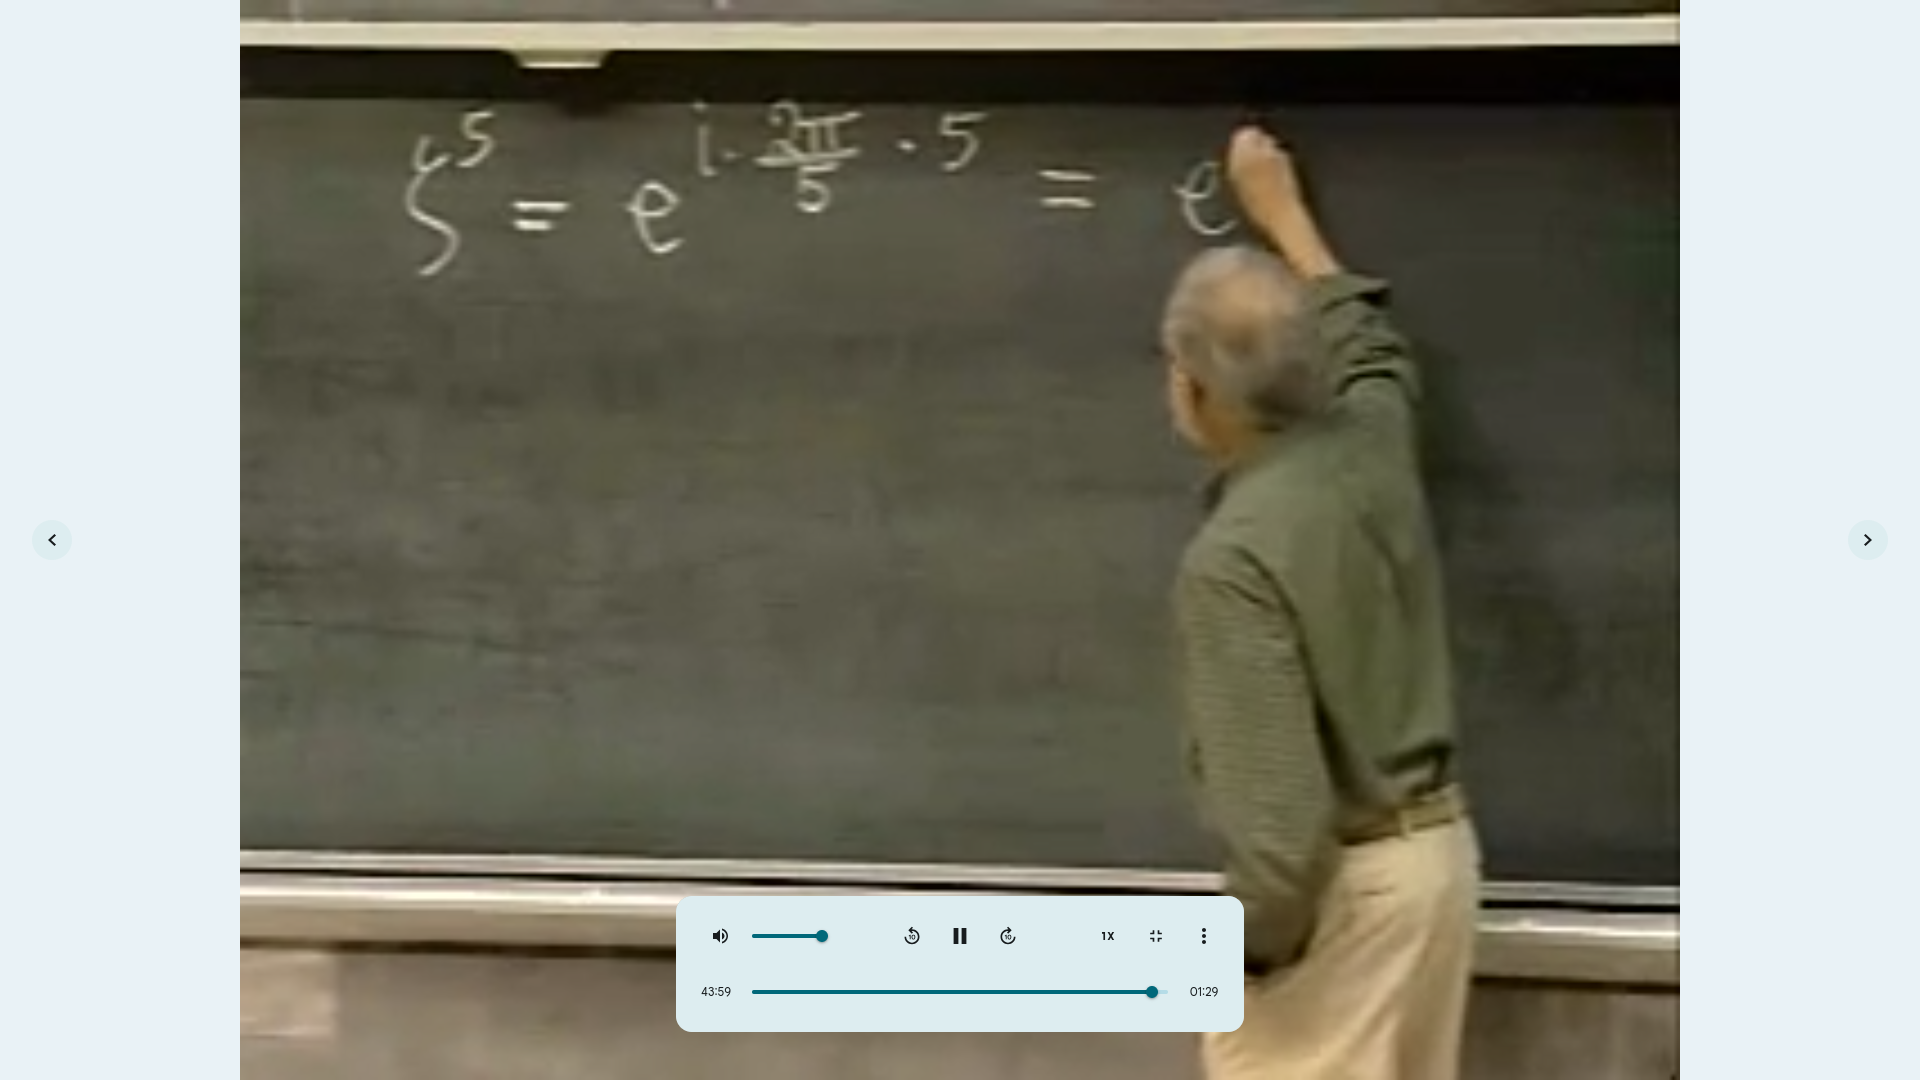 ζ⁵ = e^{i · 2π/5 · 5} = e
1X
43:59 01:29